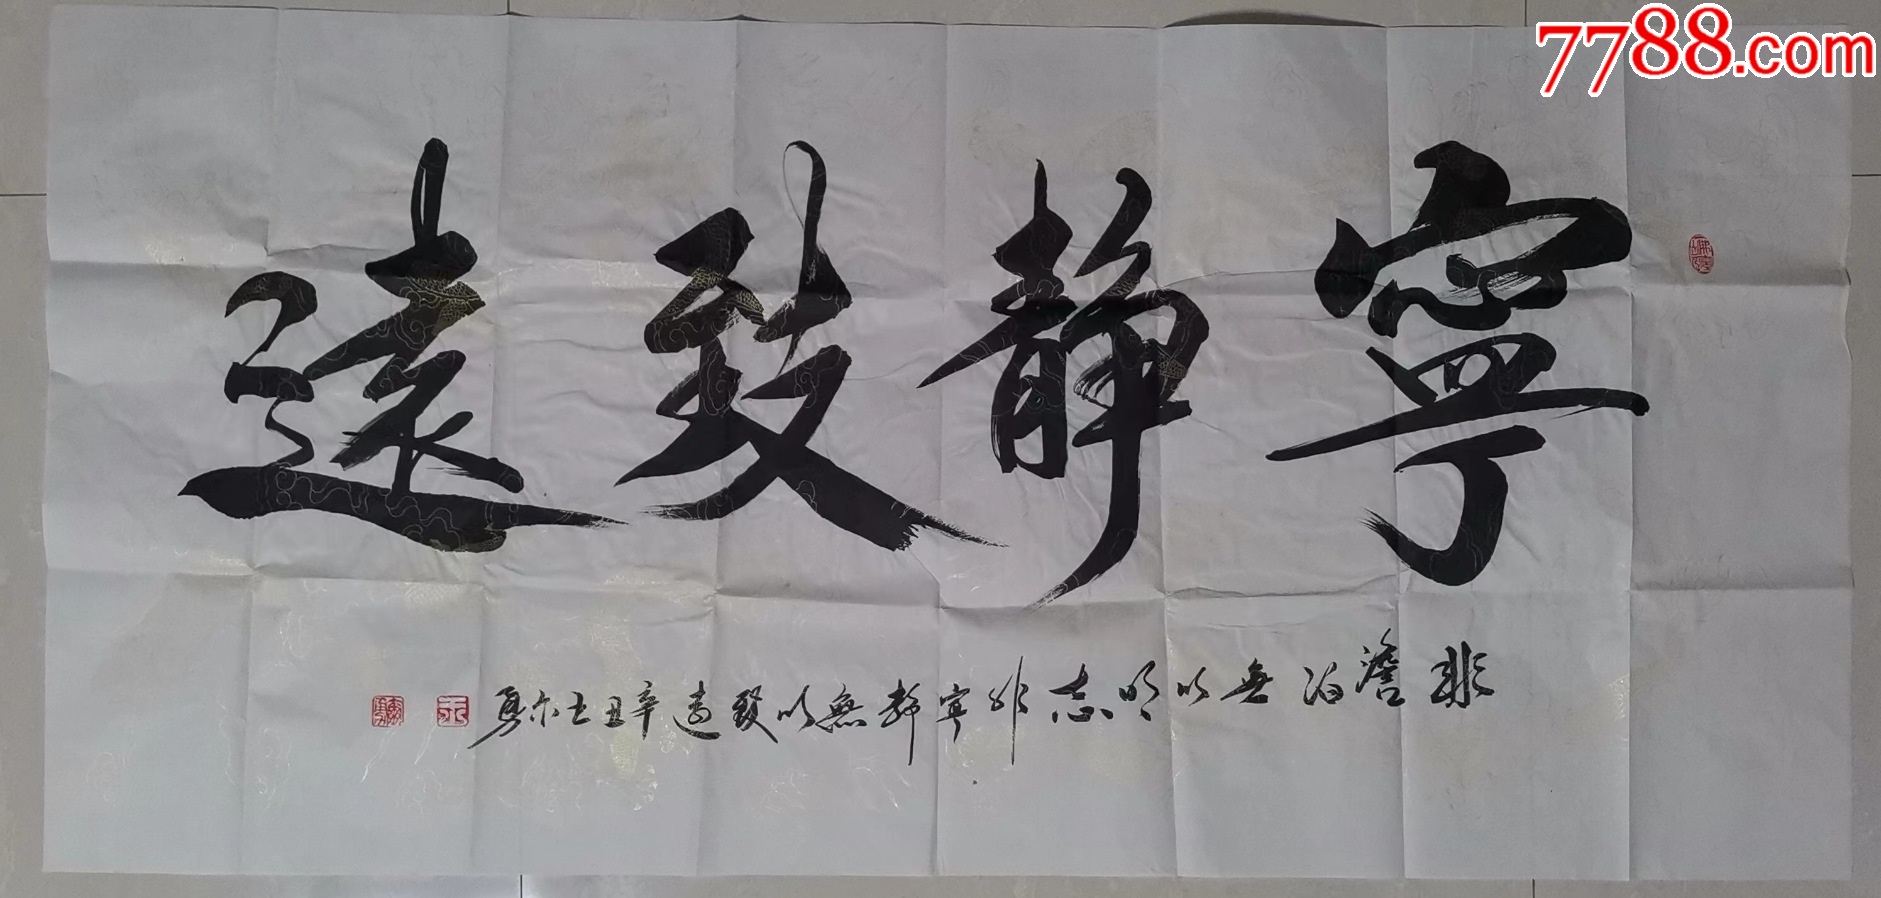 7788.com
寧靜致遠
非澹泊無以明志非寧靜無以致遠辛丑王尔勇